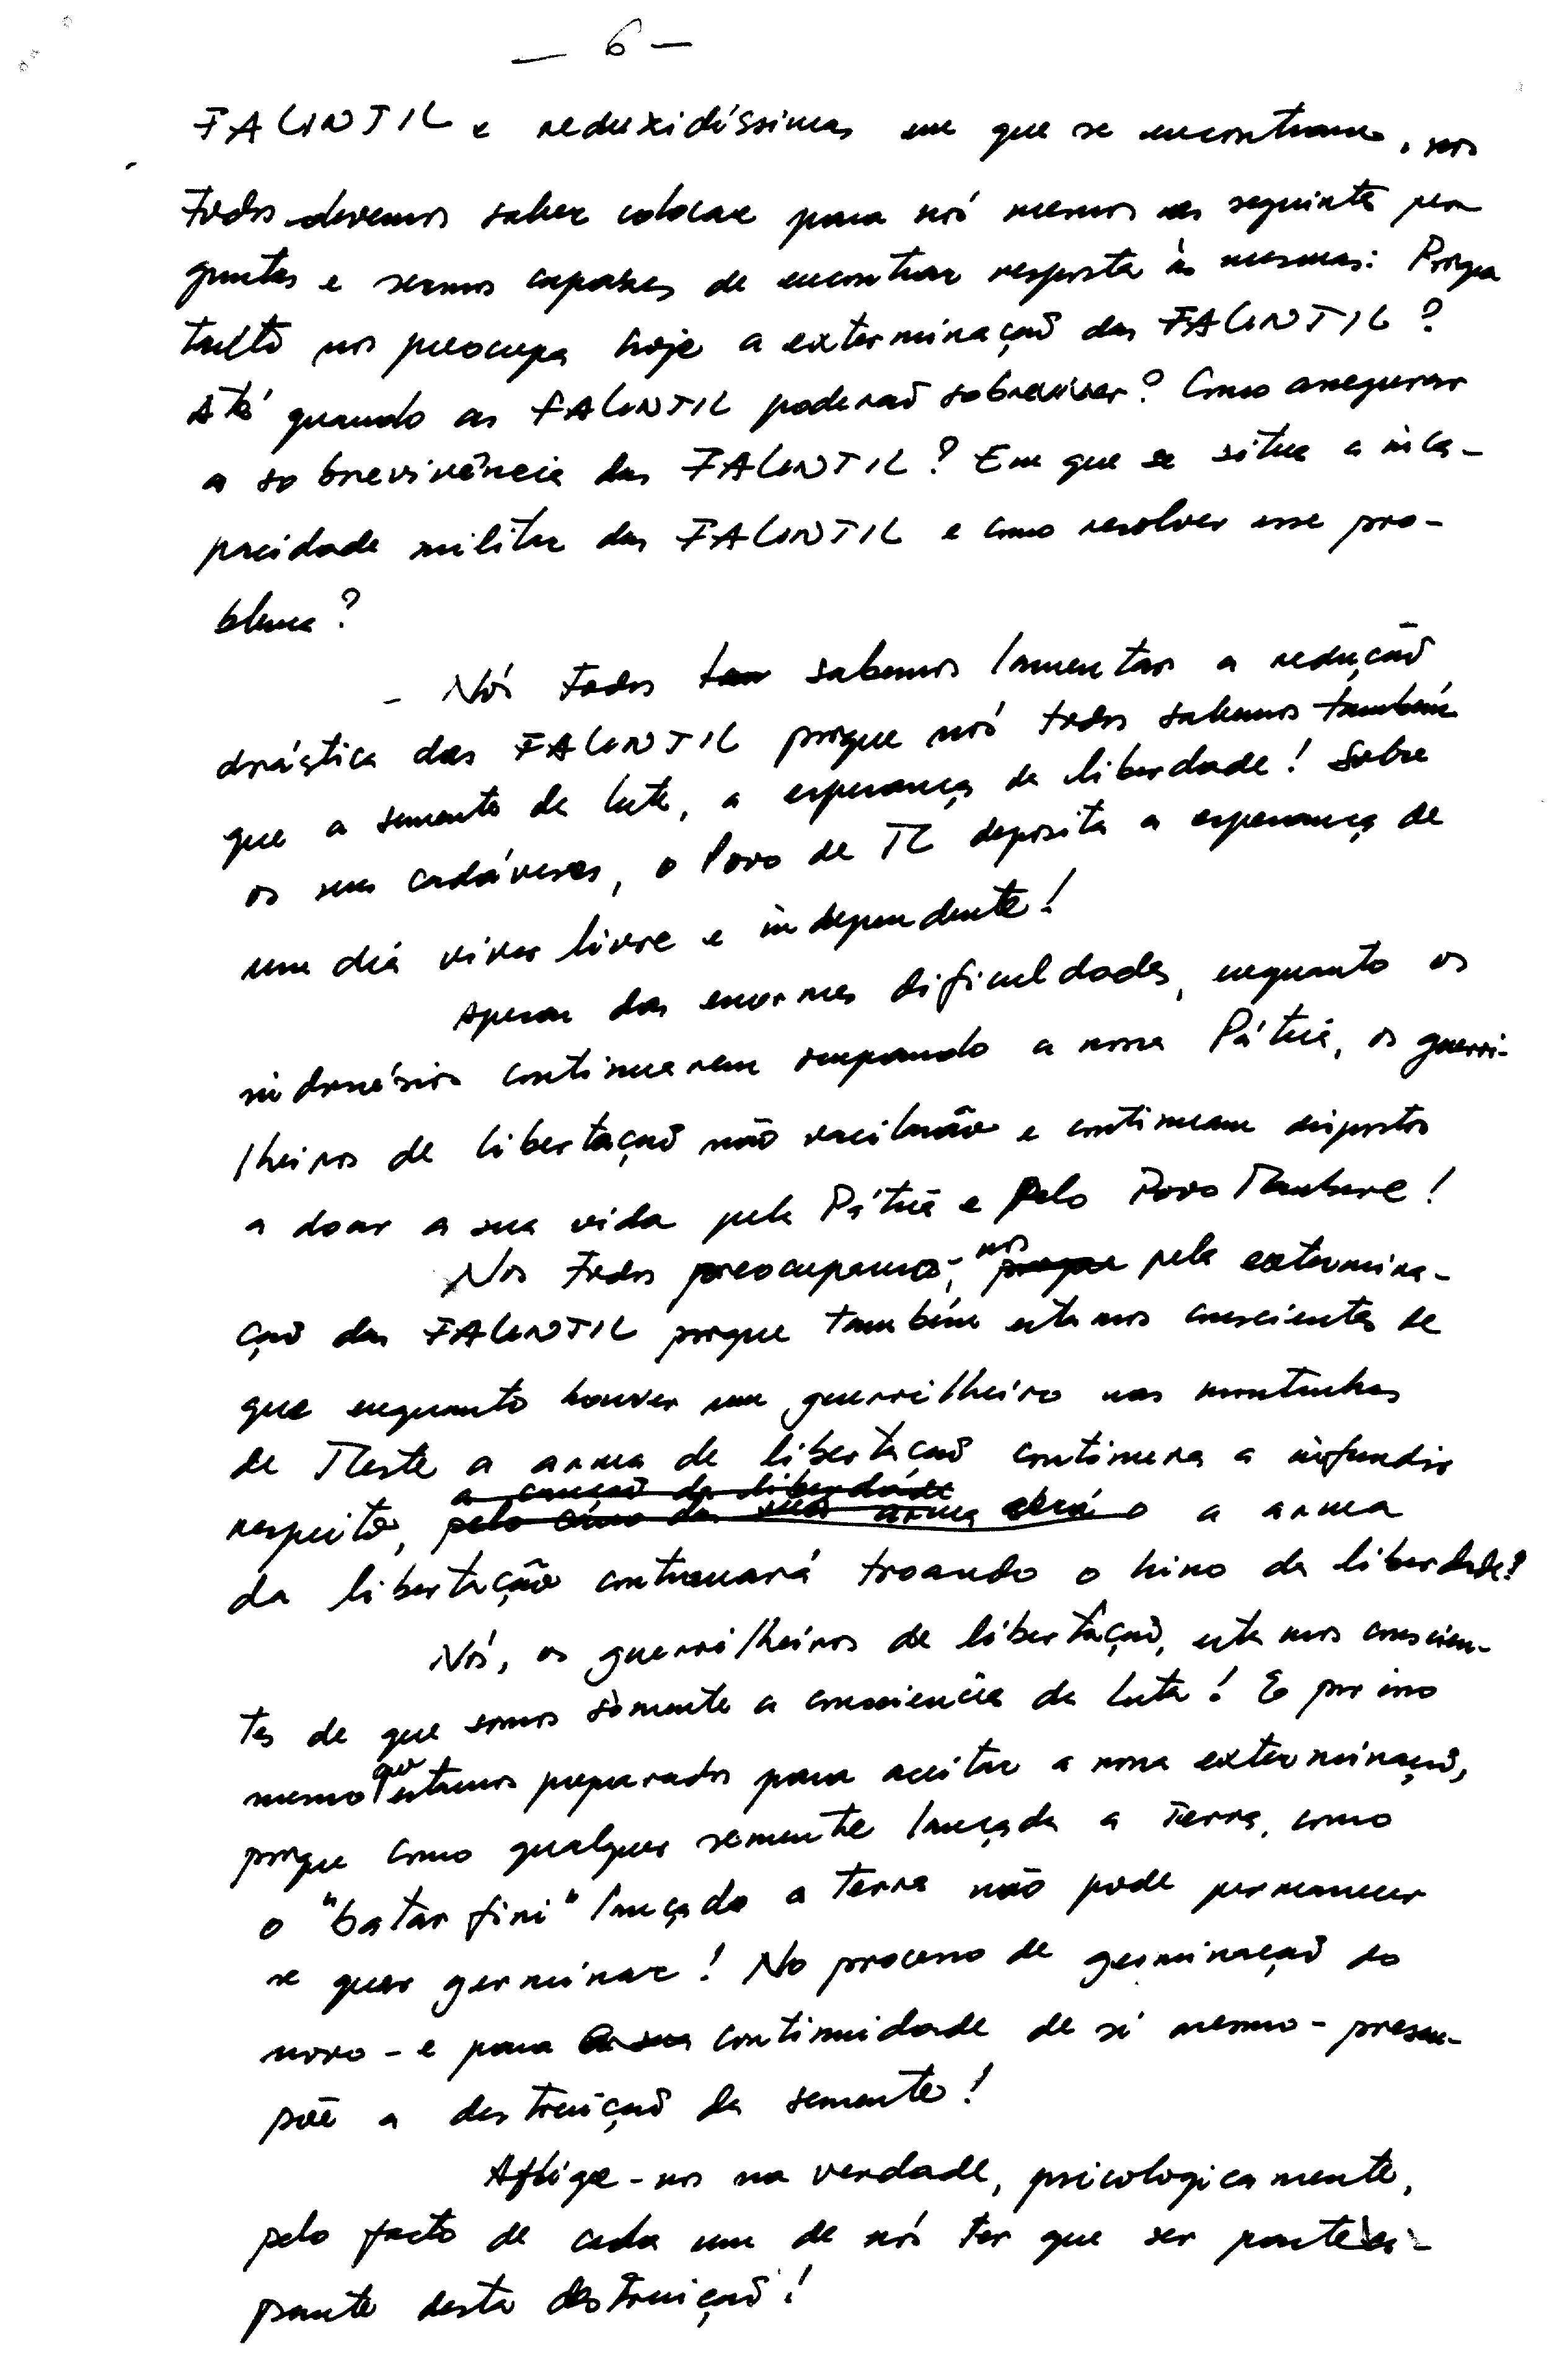 — 6 —
FALINTIL e reduzidíssimas em que se encontram, nós
todos devemos saber colocar para nós mesmos as seguintes per
guntas e sermos capazes de encontrar resposta às mesmas: Porque
tanto nos preocupa hoje a exterminação das FALINTIL?
Até quando as FALINTIL poderão sobreviver? Como assegurar
a sobrevivência das FALINTIL? Em que se situa a inca-
pacidade militar das FALINTIL e como resolver esse pro-
blema?
- Nós todos tam sabemos lamentar a redução
drástica das FALINTIL porque nós todos sabemos também
que a semente da luta, a esperança da liberdade! Sobre
os seus cadáveres, o Povo de TL deposita a esperança de
um dia viver livre e independente!
Apesar das enormes dificuldades, enquanto os
indonésios continuarem ocupando a nossa Pátria, os guerri-
lheiros de libertação não vacilarão e continuam dispostos
a doar a sua vida pela Pátria e pelo Povo Maubere!
Nós todos preocupamo-nos porque pela extermina-
ção das FALINTIL porque também estamos conscientes de
que enquanto houver um guerrilheiro nas montanhas
de Tleste a arma de libertação continuará a infundir
a canção da liberdade
respeito, pelo cano da sua arma será o a arma
da libertação continuará troando o hino da liberdade!
Nós, os guerrilheiros de libertação, estamos conscien-
tes de que somos sòmente a consciência da luta! E por isso
mesmo que estamos preparados para aceitar a nossa exterminação,
porque como qualquer semente lançada a terra, como
o "batar fini" lançado a terra não pode permanecer
se quer germinar! No processo de germinação do
novo - e para a sua continuidade de si mesmo - pressu-
põe a destruição da semente!
Aflige-nos na verdade, psicologicamente,
pelo facto de cada um de nós ter que ser partici-
pante desta destruição!